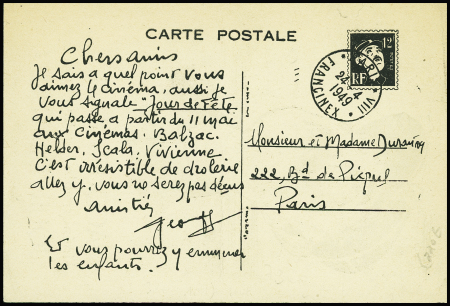 CARTE POSTALE
12
RF
PARIS VIII
24-4
1949
FRANCINEX
Chers amis
Je sais a quel point vous
aimez le cinéma, aussi je
vous signale "Jour de Fête"
qui passe a partir du 11 mai
aux cinémas. Balzac.
Helder, Scala. Vivienne
C'est irrésistible de drolerie
allez y, vous ne serez pas déçus
amitiés
Et vous pourrez y emmener
les enfants.
Monsieur et Madame
222, Bd de
Paris